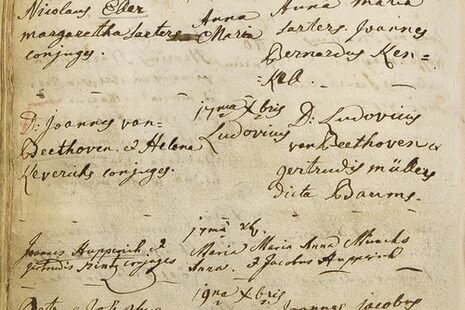 Nicolaus Eber
margaretha Sarters
conjuges.
Anna
Maria
Anna maria
Sarters. Joannes
Bernardus Ken=
D: Joannes van
Beethoven, & Helena
Keverichs conjuges.
17ma Xbris
Ludovicus
D: Ludovicus
van Beethoven &
gertrudis müllers
dicta Baums.
Joannes Hupperich &
gertrudis conjuges
17ma Xb.
Maria
Anna.
Maria Anna Munchs
& Jacobus Hupperich
19na Xbris
Joannes jacobus